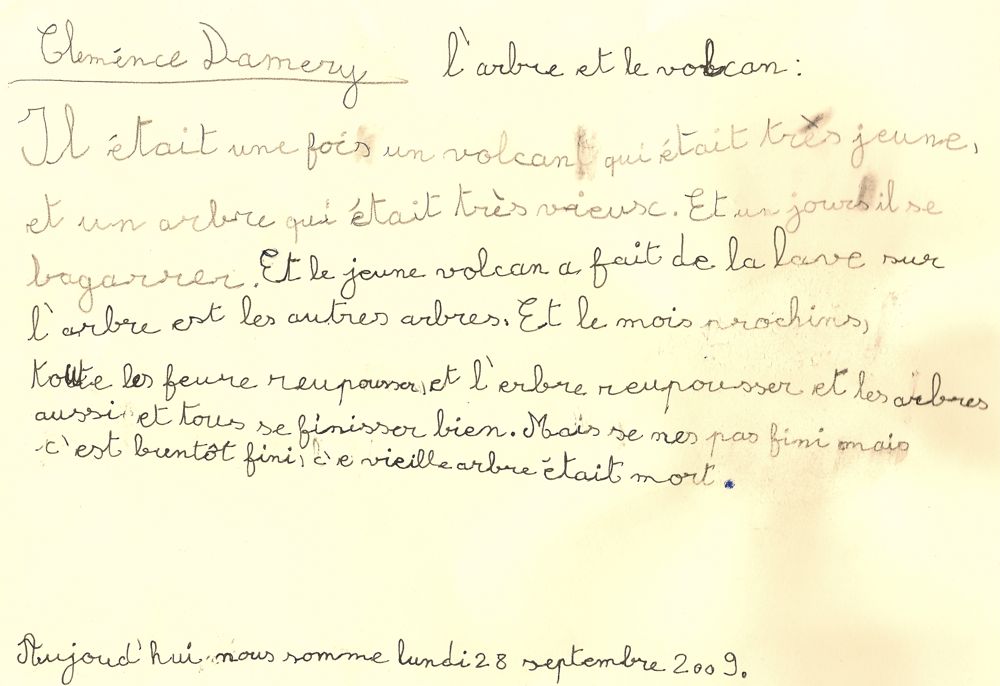 Cleménce Damery l'arbre et le volcan :
Il était une fois un volcan qui était très jeune,
et un arbre qui était très vrieusc. Et un jours il se
bagarrer. Et le jeune volcan a fait de la lave sur
l'arbre est les autres arbres. Et le mois prochins,
toute les feure reupousser, et l'erbre reupousser et les arbres
aussi et tous se finisser bien. Mais se nes pas fini mais
c'est bientôt fini, ce vieille arbre était mort.
Aujoud'hui nous somme lundi 28 septembre 2009.